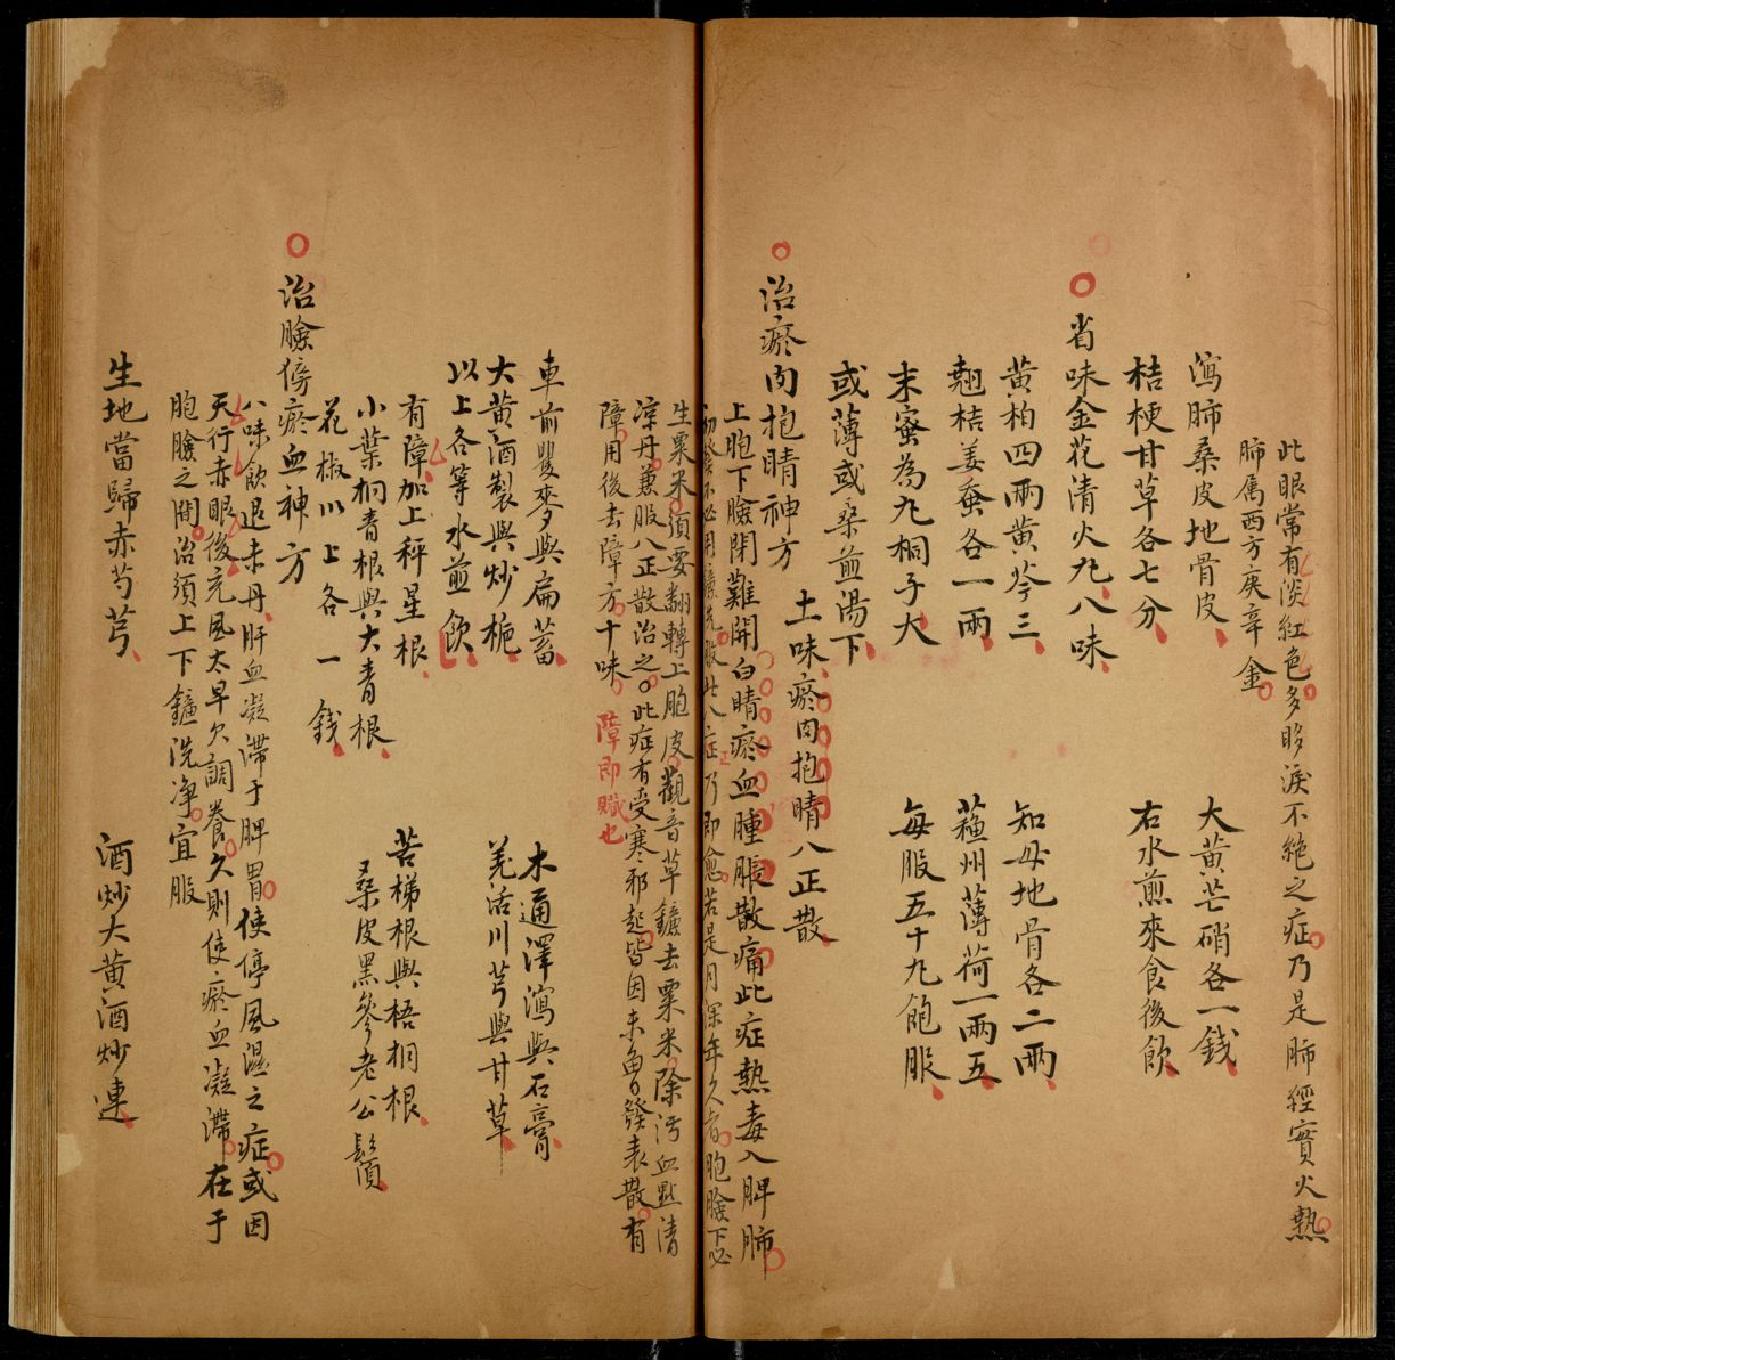 此眼常有淡紅色多眵淚不絕之症乃是肺經實火熱
肺属西方庚辛金
瀉肺桑皮地骨皮 大黃芒硝各一錢
桔梗甘草各七分 右水煎來食後飲
省味金花清火丸八味
黃柏四兩黃芩三 知母地骨各二兩
翹桔姜蚕各一兩 蘓州薄荷一兩五
末蜜為丸桐子大 每服五十丸飽服
或薄或桑煎湯下
治瘀肉抱睛神方 土味瘀肉抱睛八正散
上胞下臉閉難開白睛瘀血腫脹散痛此症熱毒入脾肺
初發不必用鐮洗服此八症乃即愈若是月深年久者胞臉下必
生粟米須要翻轉上胞皮觀音草鐮去粟米除污血點清
凉丹兼服八正散治之此症有受寒邪起皆因未曾發表散有
障用後去障方十味 障即贼也
車前瞿麥與扁蓄 木通澤瀉與石膏
大黃酒製與炒梔 羌活川芎與甘草
以上各等水煎飲
有障加上秤星根 苦梯根與梧桐根
小葉桐青根與大青根 桑皮黑參老公鬚
花椒以上各一錢
治臉傍瘀血神方
八味飲退未丹肝血凝滯于脾胃使停風濕之症或因
天行赤眼後充風太早欠調養久則使瘀血凝滯在于
胞臉之間治須上下鐮洗净宜服
生地當歸赤芍芎 酒炒大黃酒炒連